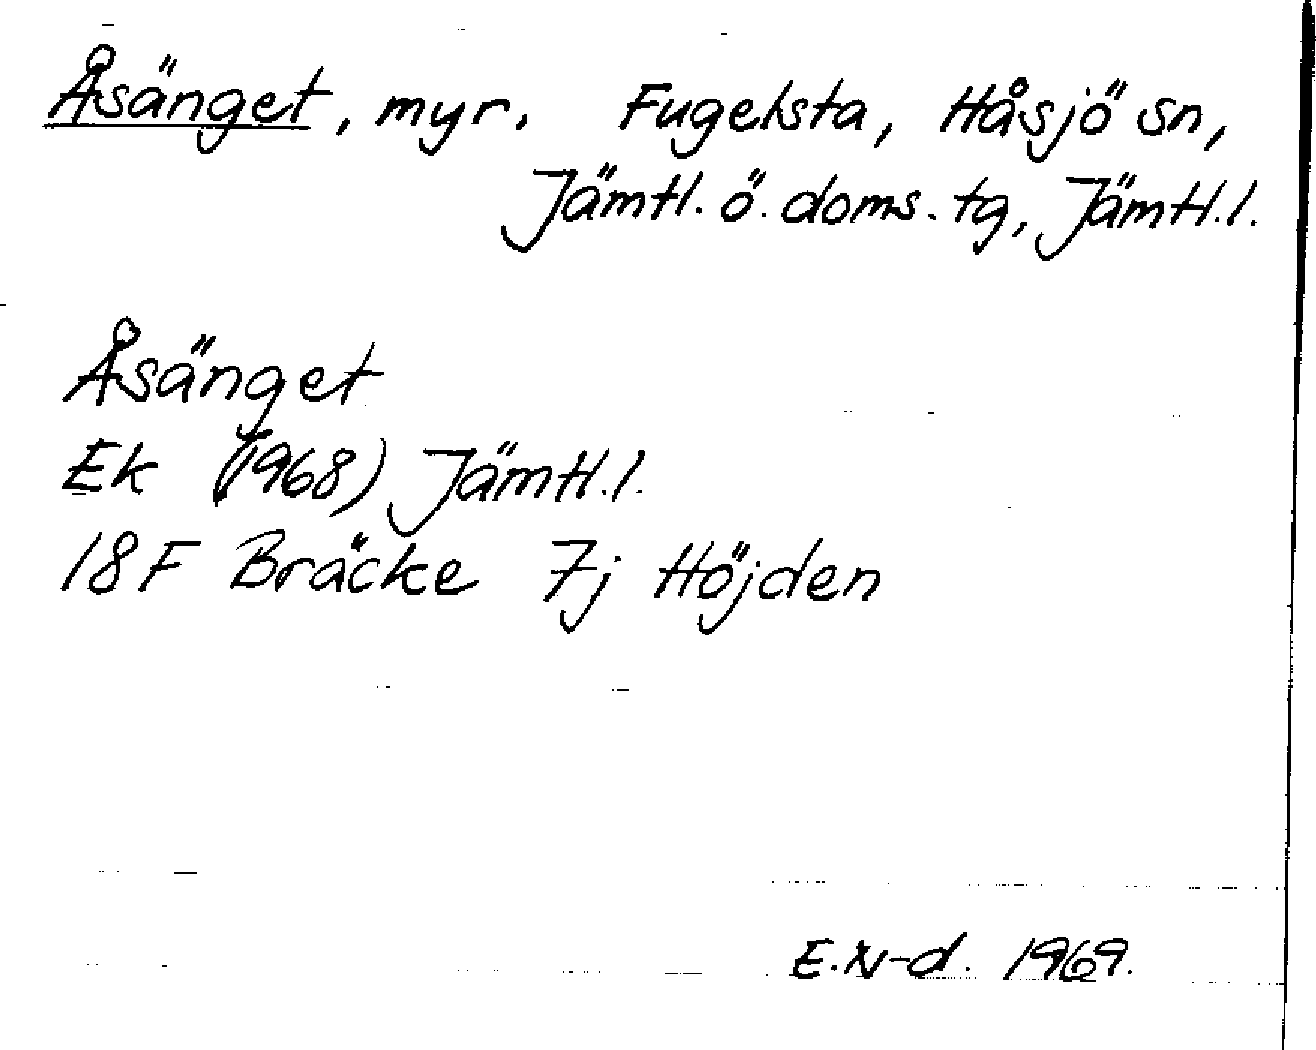 Åsänget, myr. Fugelsta, Håsjö sn,
Jämtl. ö. doms. tg, Jämtl. l.
Åsänget
Ek (1968) Jämtl. l.
18F Bräcke 7j Höjden
E. N-d. 1969.